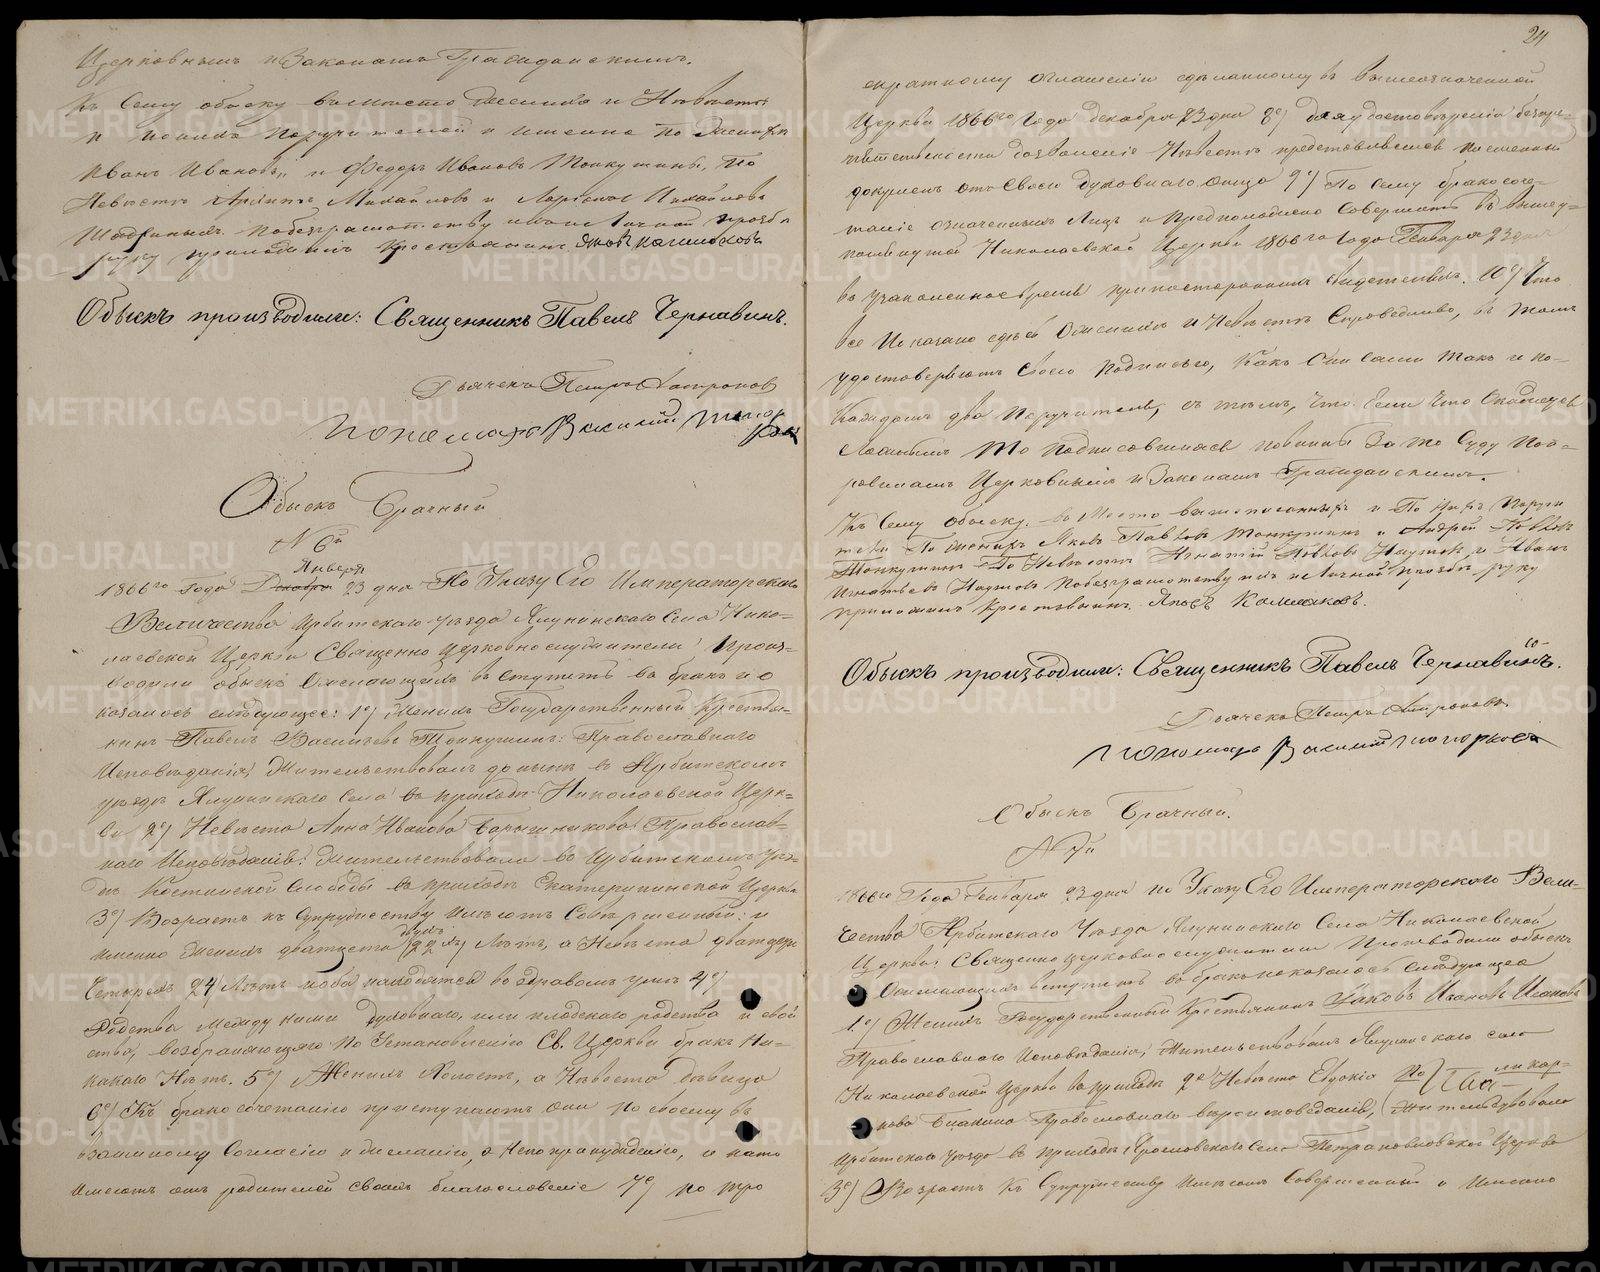 Церковнымъ и Законамъ Гражданскимъ.
Къ Сему обыску вместо Жениха и Невесты
и поихъ Поручителей и именно по Женихе
Иванъ Ивановъ и Федоръ Ивановъ Тонкушины, По
Невесте Михайловъ и Михайловъ
по безграмотству ихъ и личной прозбе
руку приложилъ Крестьянинъ Яковъ Калмаковъ
Обыскъ производили: Священникъ Павелъ Чернавинъ.
Дьячекъ Петръ
Пономарь Василий
Обыскъ Брачный
N 6й
Января
1866го года Декабря 23 дня По Указу Его Императорскаго
Величества Ирбитскаго уезда Ялунинскаго Села Нико-
лаевской Церкви Священно церковнослужители Произ-
водили обыскъ о желающихъ вступить въ бракъ и о
казалось следующее: 1е) Женихъ Государственный Крестья-
нинъ Павелъ Васильевъ Тонкушинъ: Православнаго
Исповеданія, Жительствовалъ до ныне въ Ирбитскомъ
уезде Ялунинскаго Села въ приходе Николаевской Церк-
ви 2е) Невеста Анна Иванова Барышникова Православ-
наго Исповеданія: Жительствовала въ Ирбитскомъ уез-
де Костинской Слободы въ приходе Екатерининской Церкви
3е) Возрастъ къ Супружеству Имеютъ Совершенный: и
именно Женихъ дватцати двухъ (22 хъ) Летъ, а Невеста дватцати
Четырехъ 24 Летъ и оба находятся въ здравомъ уме 4е)
Родства между ними духовнаго, или плотскаго родства и свой
ства, возбраняющаго по Установленію Св. Церкви бракъ Ни-
какаго Нетъ. 5е) Женихъ Холостъ, а Невеста девица
6е) Къ бракосочетанію приступаютъ они по своему въ
заимному Согласію и желанію, а Непопринужденію, и на то
Имеютъ отъ родителей своихъ благословеніе 7е) по тро
24
екратному оглашеніи сделанному въ вышеозначенной
Церкви 1866го Года декабря 23 дня 8е) для удостоверенія безпре-
пятственности дозволеніе Невеста представившись письменный
документъ отъ Своего духовнаго отца 9е) По Сему бракосоче-
таніе означенныхъ Лицъ и Предположено Совершить въ вышеу-
помянутой Николаевской Церкви 1866го Года Генваря 23 дня
въ узаконенное время при постороннихъ Свидетеляхъ. 10е) Что
все Показано здесь О женихе и Невесте Справедливо, въ томъ
удостоверяютъ Своею подписью, Какъ Они Сами такъ и по-
Каждомъ два Поручителя, съ темъ, что Если Что Окажется
Ложнымъ То Подписавшіяся повинны За то Суду Поп-
равиламъ Церковнымъ и Законамъ Гражданскимъ.
Къ Сему обыску: въ Место вышеписанныхъ и По нихъ Поручи
тели По Женихе Яковъ Павловъ Тонкушинъ и Андрей Павловъ
Тонкушинъ По Невесте Игнатій Павловъ Наумовъ и Иванъ
Игнатьевъ Наумовъ По безграмотству ихъ и Личной прозбе руку
приложилъ Крестьянинъ Яковъ Калмаковъ.
Обыскъ производили: Священникъ Павелъ Чернавинъ.
Дьячекъ Петръ
Пономарь Василий
Обыскъ Брачный.
N 7й
1866го Года Генваря 23 дня по Указу Его Императорскаго Вели-
чества Ирбитскаго Уезда Ялунинскаго Села Николаевской
Церкви: Священно церковнослужители Производили обыскъ
О желающихъ вступить въ бракъ и оказалось Следующее
1е) Женихъ Государственный Крестьянинъ Яковъ Ивановъ Исаковъ
Православнаго Исповеданія, Жительствовалъ Ялунинскаго села
Николаевской Церкви въ приходе 2е Невеста Евдокія
Православнаго вероисповеданія, Жительствовала
Ирбитскаго уезда въ приходе Села Петропавловской Церкви
3е) Возрастъ Къ Супружеству Имеютъ Совершенный и Именно